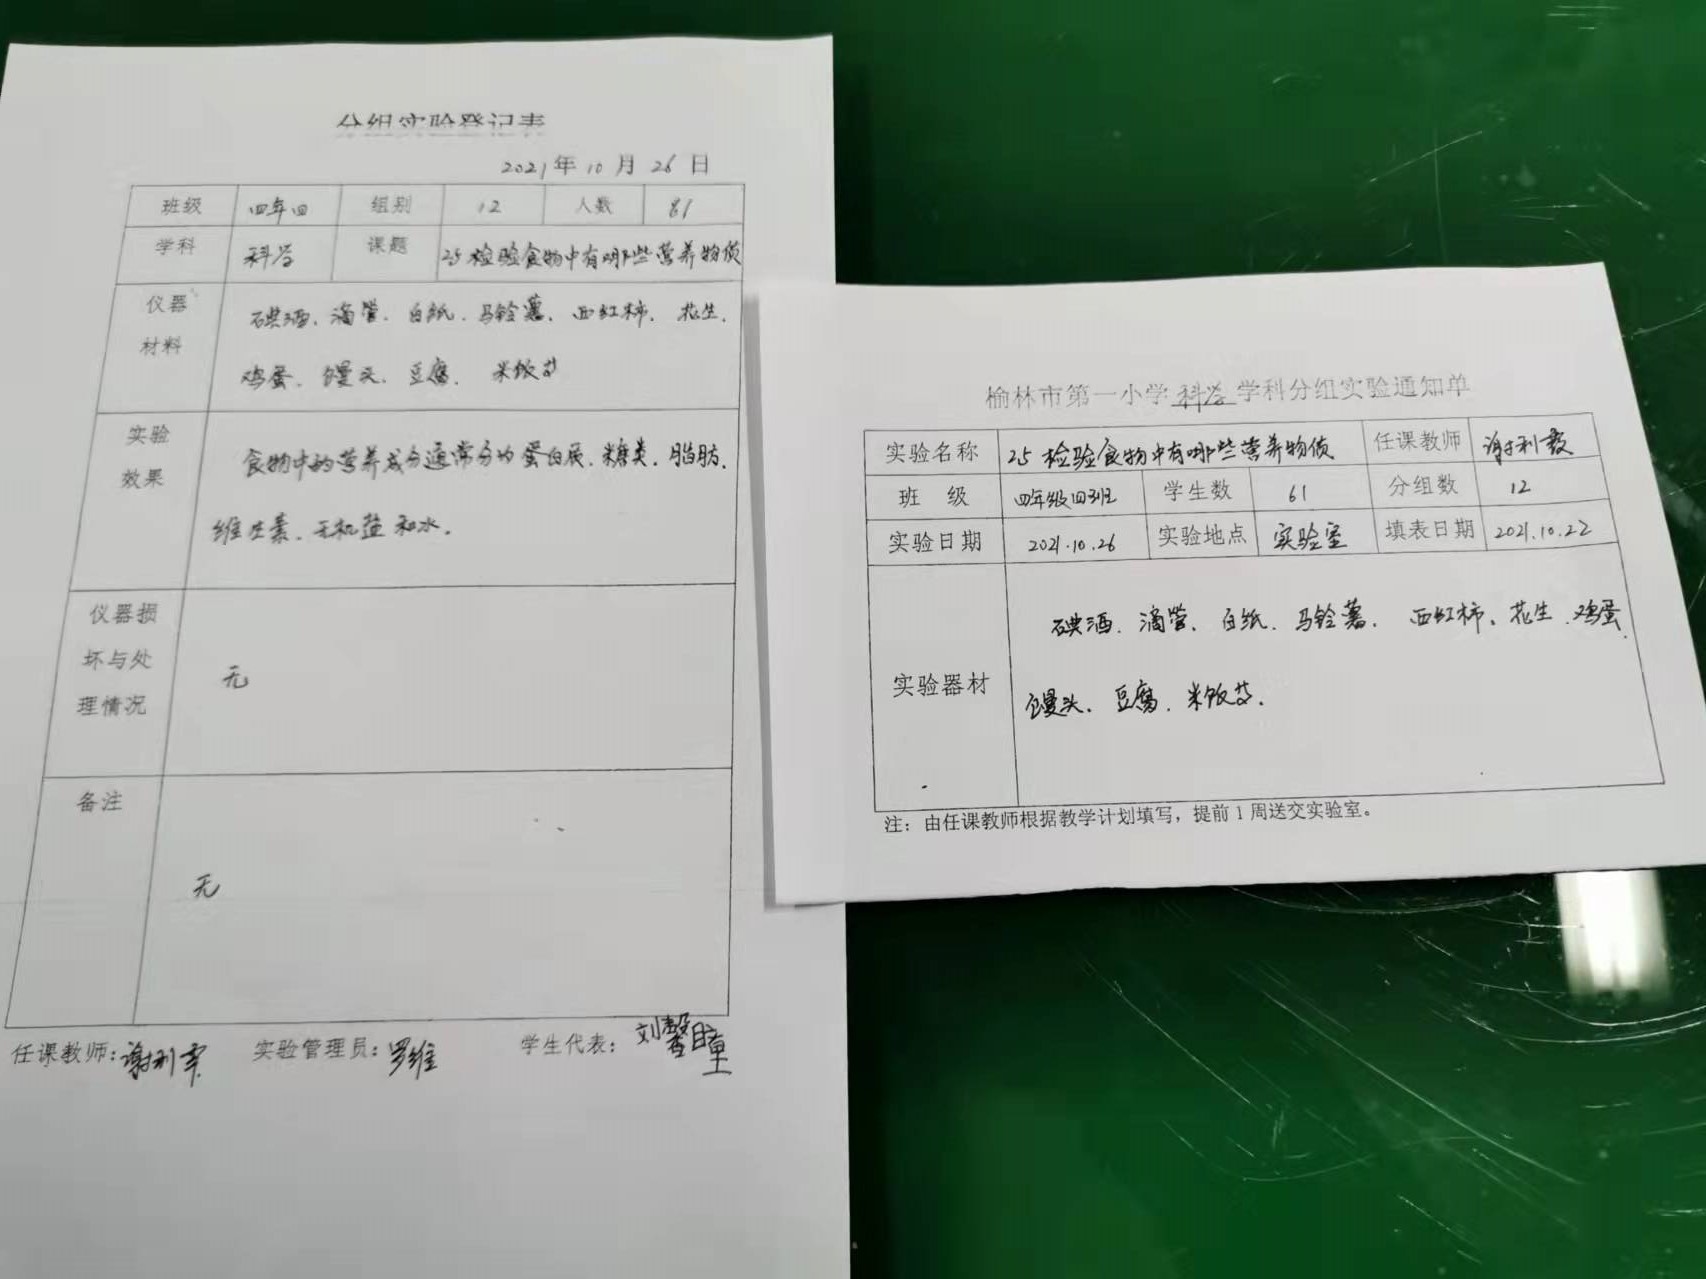 分组实验登记表
2021年10月26日
班级 四年四 组别 12 人数 61
学科 科学 课题 25检验食物中有哪些营养物质
仪器材料 碘酒、滴管、白纸、马铃薯、西红柿、花生、
鸡蛋、馒头、豆腐、米饭等
实验效果 食物中的营养成分通常分为蛋白质、糖类、脂肪、
维生素、无机盐和水。
仪器损坏与处理情况 无
备注 无
任课教师:谢利霞 实验管理员:罗维 学生代表:刘馨瞳
榆林市第一小学科学学科分组实验通知单
实验名称 25检验食物中有哪些营养物质 任课教师 谢利霞
班级 四年级四班 学生数 61 分组数 12
实验日期 2021.10.26 实验地点 实验室 填表日期 2021.10.22
实验器材 碘酒、滴管、白纸、马铃薯、西红柿、花生、鸡蛋、
馒头、豆腐、米饭等.
注:由任课教师根据教学计划填写,提前1周送交实验室。